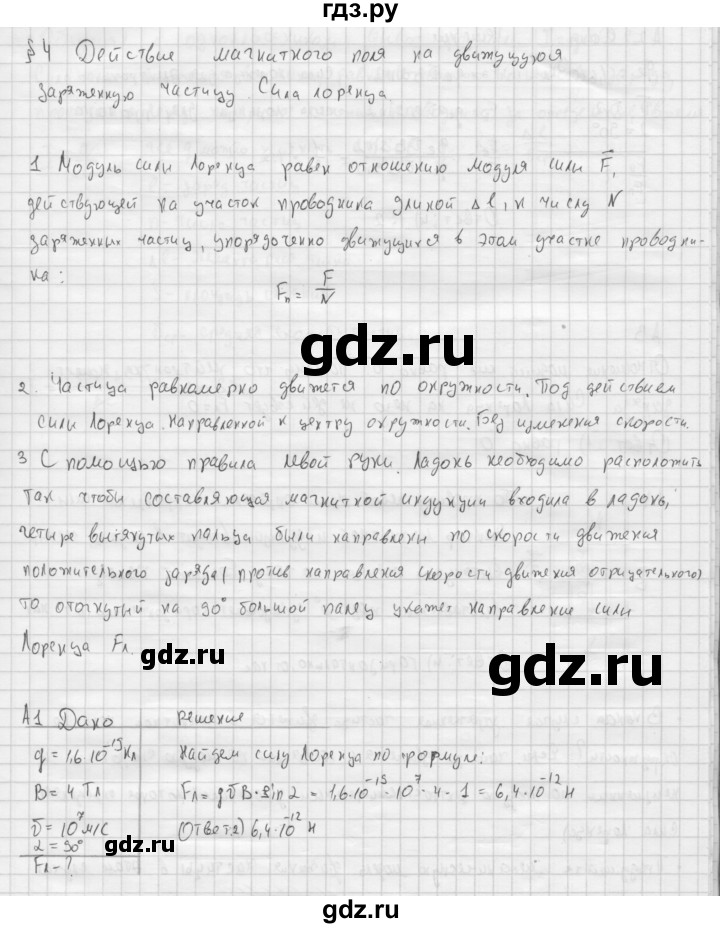 гдз.ру
§4 Действие магнитного поля на движущуюся
заряженную частицу. Сила лоренца
1 Модуль сили Лоренца равен отношению модуля сили F,
действующей на участок проводника длиной Δl, к числу N
заряженных частиц, упорядоченно движущихся в этом участке проводни-
ка:
Fл = F/N
gdz.ru
2. Частица равномерно движется по окружности. Под действием
сили Лоренца. Направленной к центру окружности. Без изменения скорости.
3 С помощью правила левой руки. Ладонь необходимо расположить
так чтобы составляющая магнитной индукции входила в ладонь,
четыре вытянутых пальца были направлены по скорости движения
положительного заряда (против направления скорости движения отрицательного)
то отогнутый на 90° большой палец укажет направление сили
Лоренца Fл.
gdz.ru
gdz.ru
А1 Дано Решение
q = 1,6·10⁻¹⁹ Кл Найдем силу Лоренца по формуле:
B = 4 Тл Fл = qυB·sin α = 1,6·10⁻¹⁹·10⁷·4·1 = 6,4·10⁻¹² Н
υ = 10⁷ м/с (Ответ: 2) 6,4·10⁻¹² Н
α = 90°
Fл - ?
gdz.ru
gdz.ru
gdz.ru